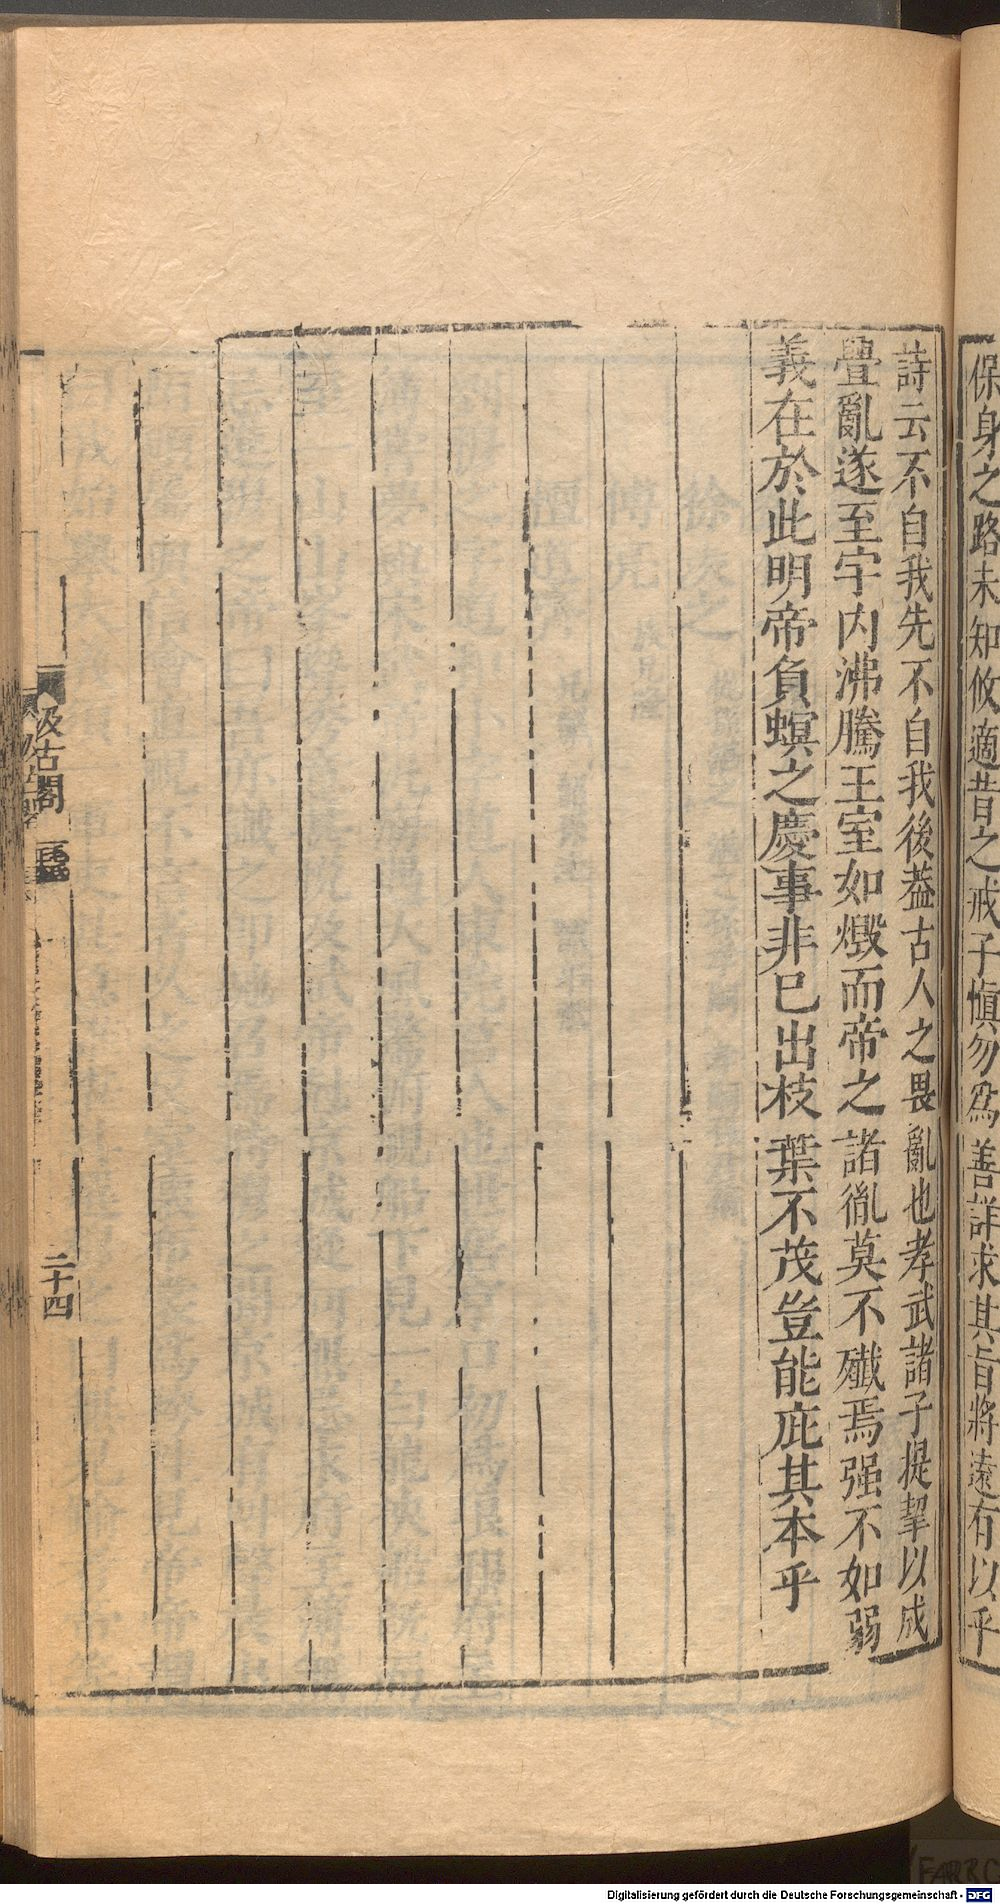 保身之路未知攸適昔之戒子愼勿爲善詳求其旨將遠有以乎
詩云不自我先不自我後葢古人之畏亂也孝武諸子提挈以成
釁亂遂至宇内沸騰王室如燬而帝之諸胤莫不殲焉强不如弱
義在於此明帝負螟之慶事非已出枝葉不茂豈能庇其本乎
汲古閣
二十四
Digitalisierung gefördert durch die Deutsche Forschungsgemeinschaft - DFG